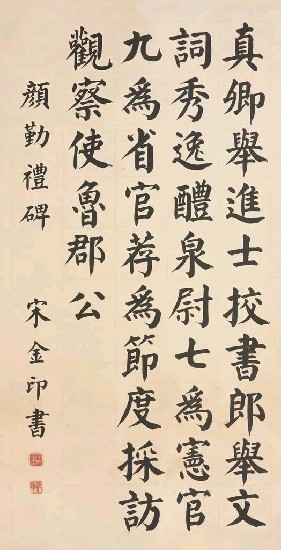 真卿舉進士挍書郎舉文
詞秀逸醴泉尉七為憲官
九為省官荐為節度採訪
觀察使魯郡公
顏勤禮碑 宋金印書